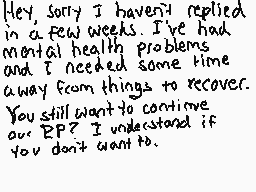 Hey, sorry I haven't replied
in a few weeks. I've had
mental health problems
and I needed some time
away from things to recover.
You still want to continue
our RP? I understand if
you don't want to.